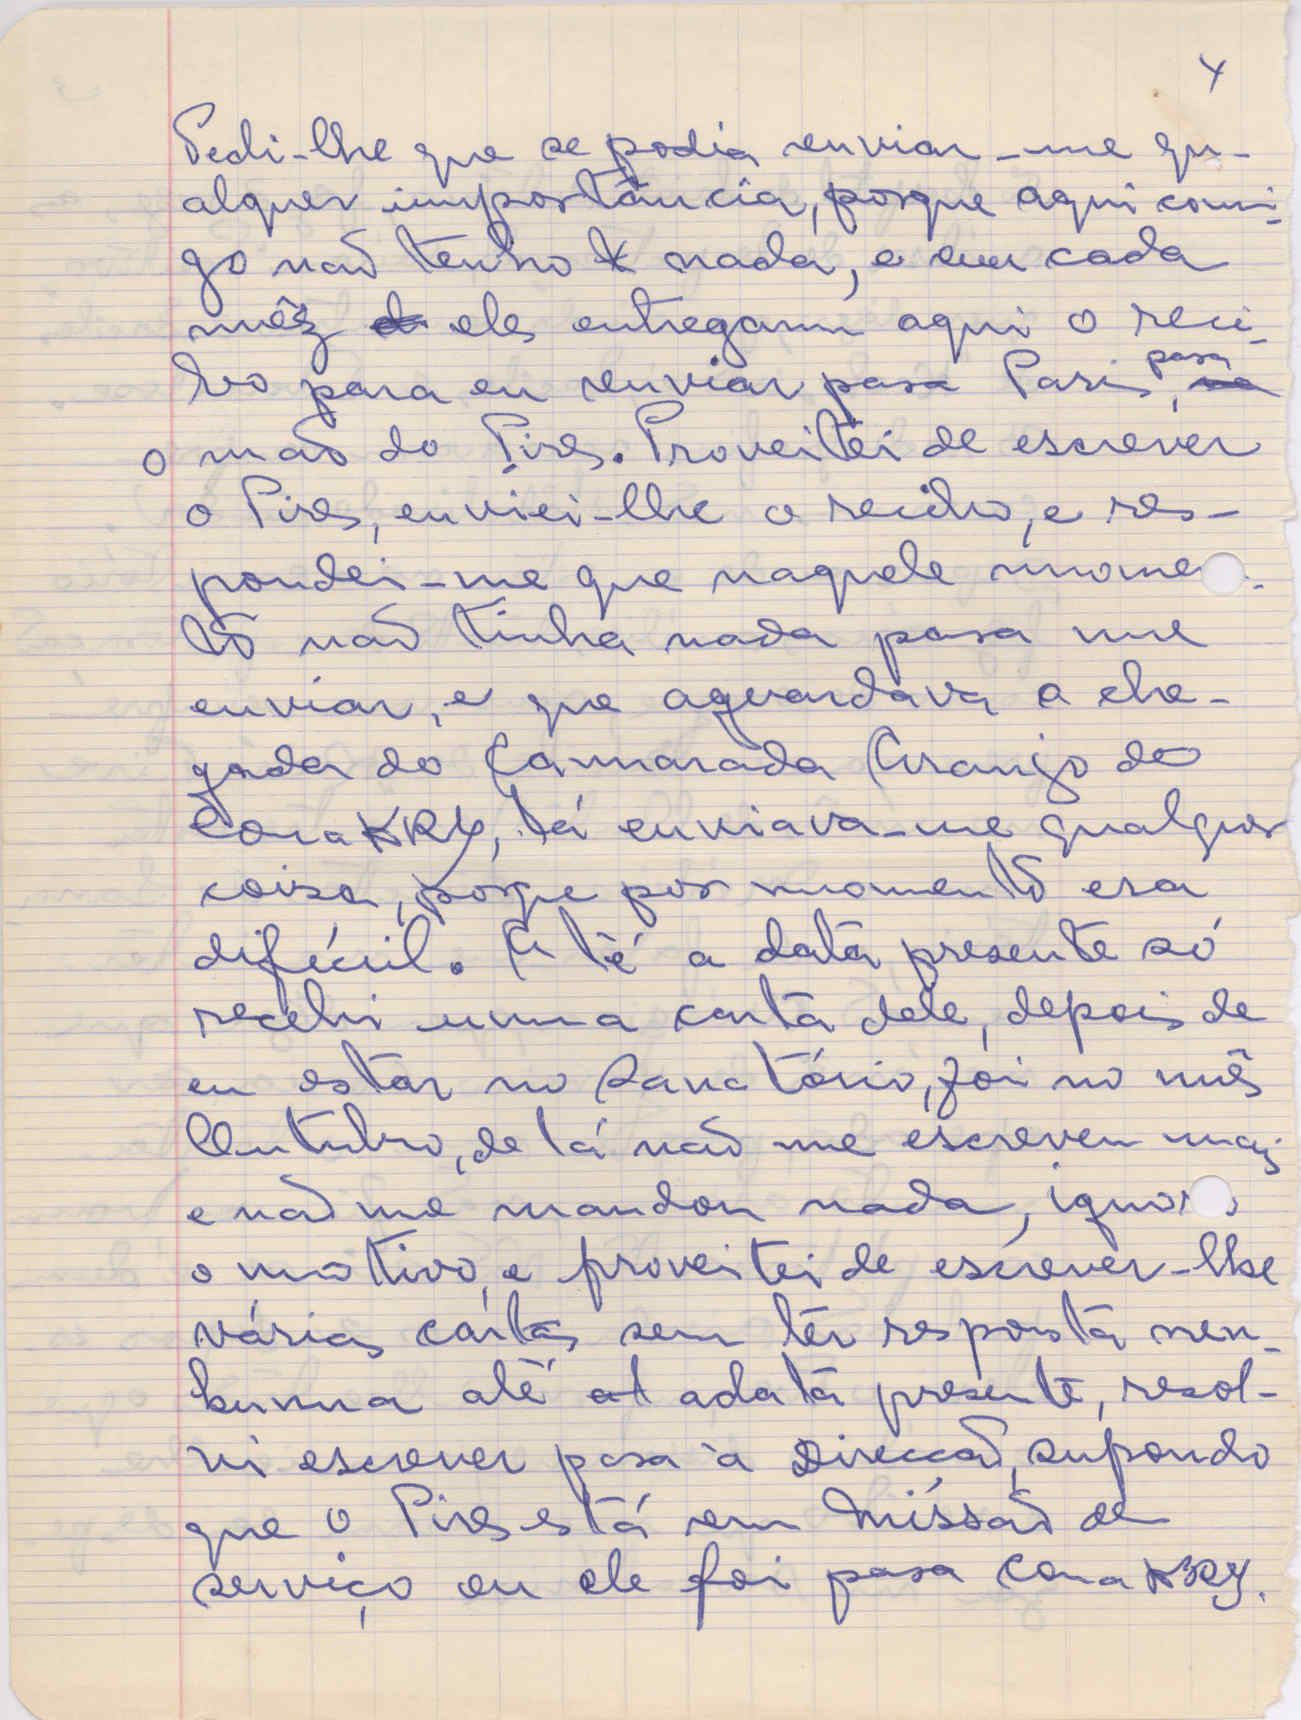 4
Pedi-lhe que se podia enviar-me qu-
alquer importância, porque aqui comi-
go não tenho nada, e em cada
mêz eles entregam aqui o reci-
bo para eu enviar para Paris, para
o mão do Pires. Proveitei de escrever
o Pires, enviei-lhe o recibo, e res-
pondei-me que naquele momen-
to não tinha nada para me
enviar, e que aguardava a che-
gada do Camarada Araujo do
ConaKRY, lá enviava-me qualquer
coisa, porque por momento era
difícil. Até a data presente só
recebi uma carta dele, depois de
eu estar no Sanatório, foi no mês
Outubro, de lá não me escreveu mais
e não me mandou nada, ignoro
o motivo, e proveitei de escrever-lhe
várias cartas sem têr resposta nen-
huma até at a data presente, resol-
vi escrever para à Direcção, supondo
que o Pires está em Missão de
serviço ou ele foi para ConaKRY.